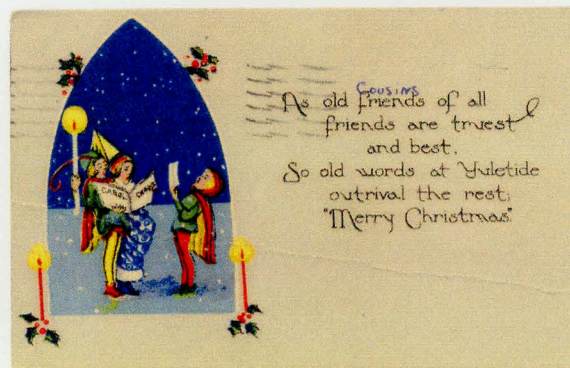 Cousins
As old friends of all
friends are truest
and best,
So old words at Yuletide
outrival the rest;
"Merry Christmas"
CAROL